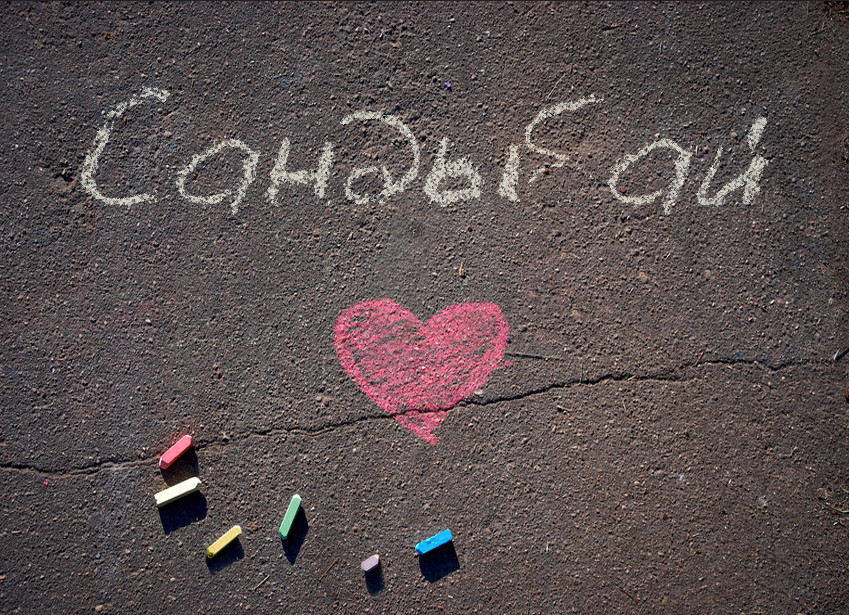 Сандыбай